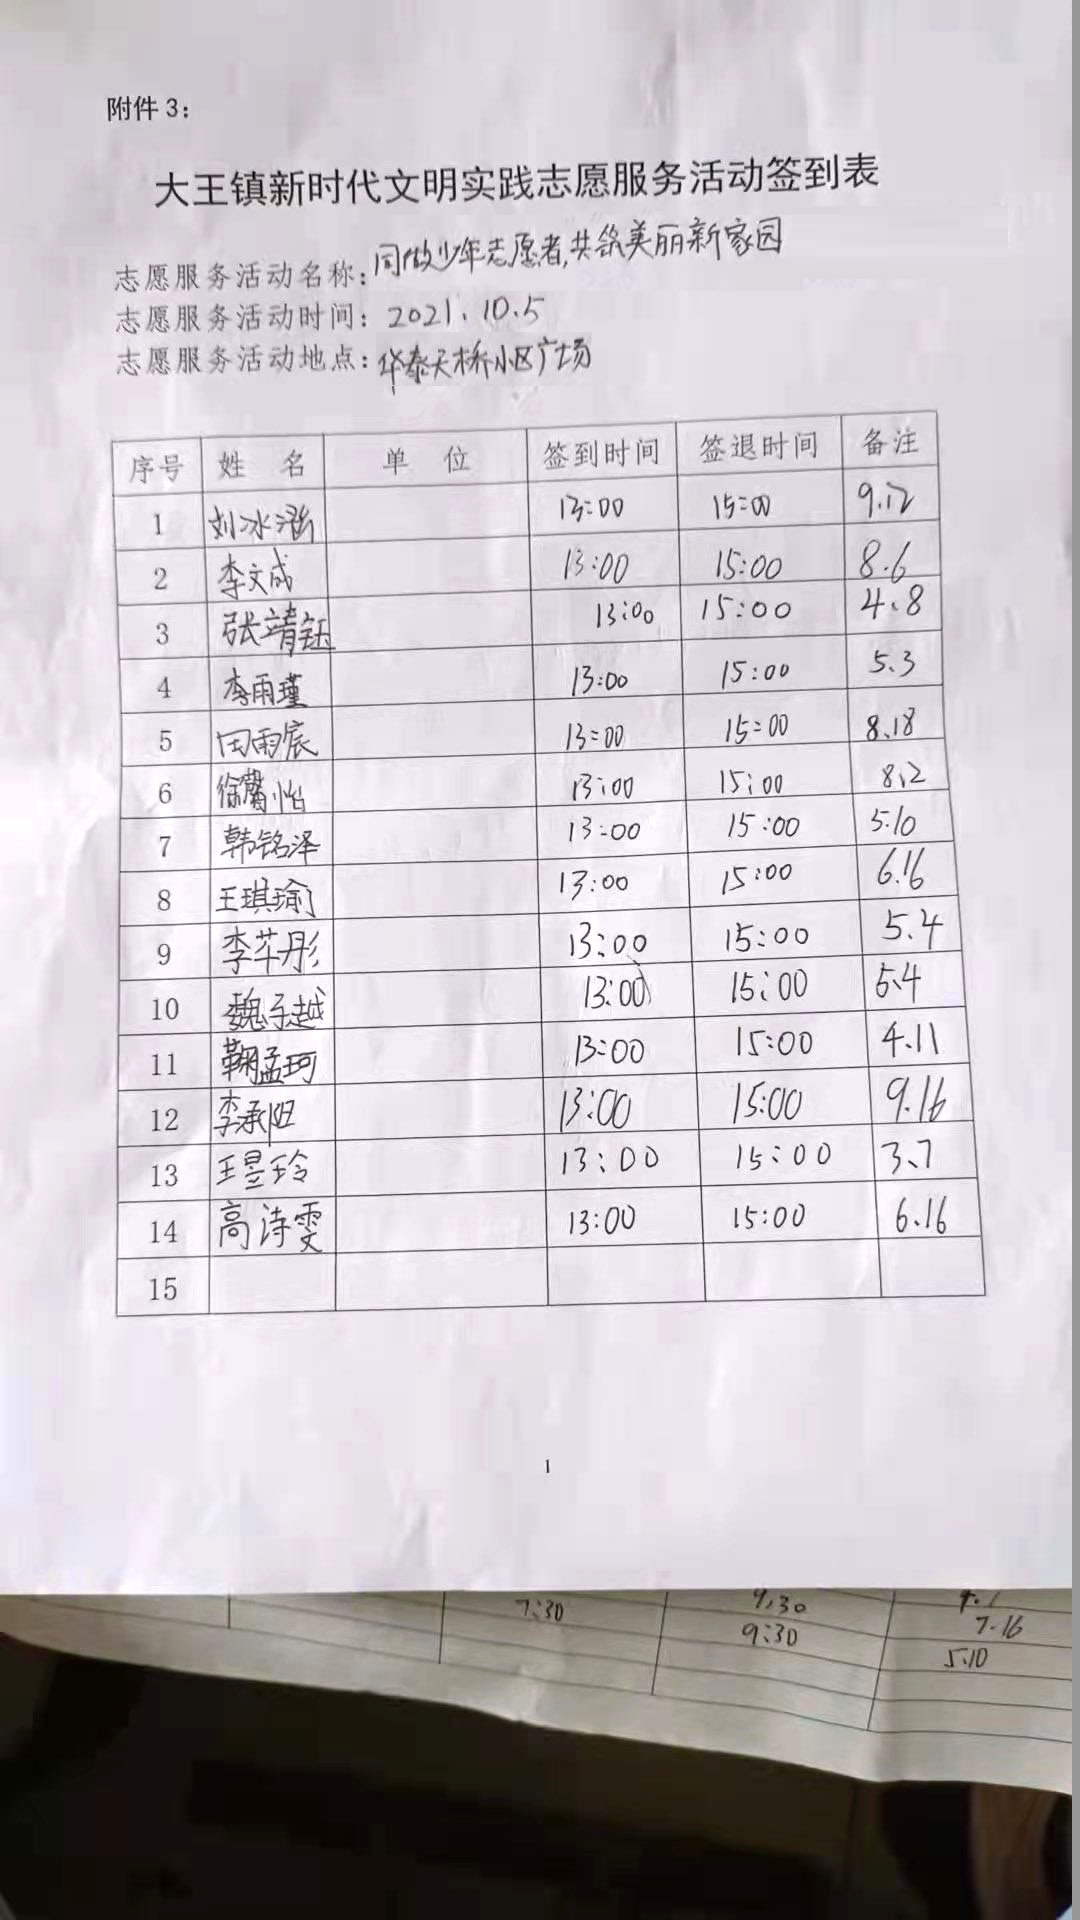 附件 3：
大王镇新时代文明实践志愿服务活动签到表
志愿服务活动名称：同做少年志愿者,共筑美丽新家园
志愿服务活动时间：2021.10.5
志愿服务活动地点：华泰天桥小区广场
序号 姓 名 单 位 签到时间 签退时间 备注
1 刘冰涵 13:00 15:00 9.12
2 李文成 13:00 15:00 8.6
3 张靖钰 13:00 15:00 4.8
4 李雨瑾 13:00 15:00 5.3
5 田雨宸 13:00 15:00 8.18
6 徐馨怡 13:00 15:00 8.2
7 韩铭泽 13:00 15:00 5.10
8 王琪瑜 13:00 15:00 6.16
9 李芊彤 13:00 15:00 5.4
10 魏子越 13:00 15:00 5.4
11 鞠孟珂 13:00 15:00 4.11
12 李承阳 13:00 15:00 9.16
13 王昱玲 13:00 15:00 3.7
14 高诗雯 13:00 15:00 6.16
15
1
9:30
7:30 9:30 7.16
5.10